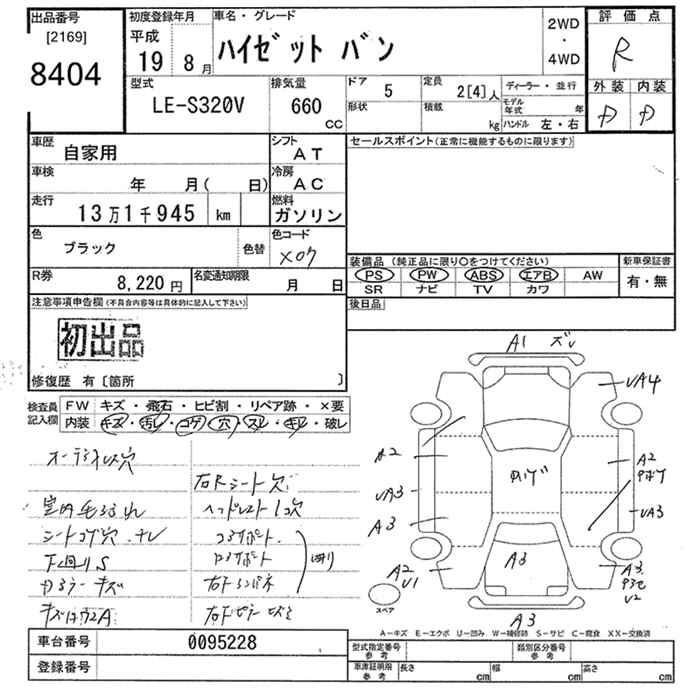 出品番号
[2169]
8404
初度登録年月
平成
19 8月
車名・グレード
ハイゼット バン
2WD
・
4WD
評価点
R
外装 内装
D D
型式
LE-S320V
排気量
660
CC
ドア
5
定員
2[4]人
形状
積載
kg
ディーラー・並行
モデル年式 年
ハンドル 左・右
車歴
自家用
シフト
AT
車検
年 月( 日)
冷房
AC
走行
13万1千945 km
燃料
ガソリン
色
ブラック
色替
色コード
X07
R券
8,220円
名変通知期限
月 日
セールスポイント(正常に機能するものに限ります)
装備品 (純正品に限り○をつけてください)
PS PW ABS エアB AW
SR ナビ TV カワ
新車保証書
有・無
後日品
注意事項申告欄(不具合内容等は具体的に記入して下さい)
初出品
修復歴 有〔箇所 〕
検査員記入欄
FW キズ・飛石・ヒビ割・リペア跡・×要
内装 キズ・汚レ・コゲ・穴・スレ・キレ・破レ
オーディオレス穴
右Rシート穴
ヘッドレスト1欠
シートコゲ穴
下廻りS
A1
UA4
A2
UA3
A3
A2
U1
A2
UA3
A3
U2
A3
A3
スペア
A-キズ E-エクボ U-凹み W-補修跡 S-サビ C-腐食 XX-交換済
車台番号
0095228
登録番号
型式指定番号
参考
類別区分番号
参考
車庫証明用
参考
長さ cm 幅 cm 高さ cm